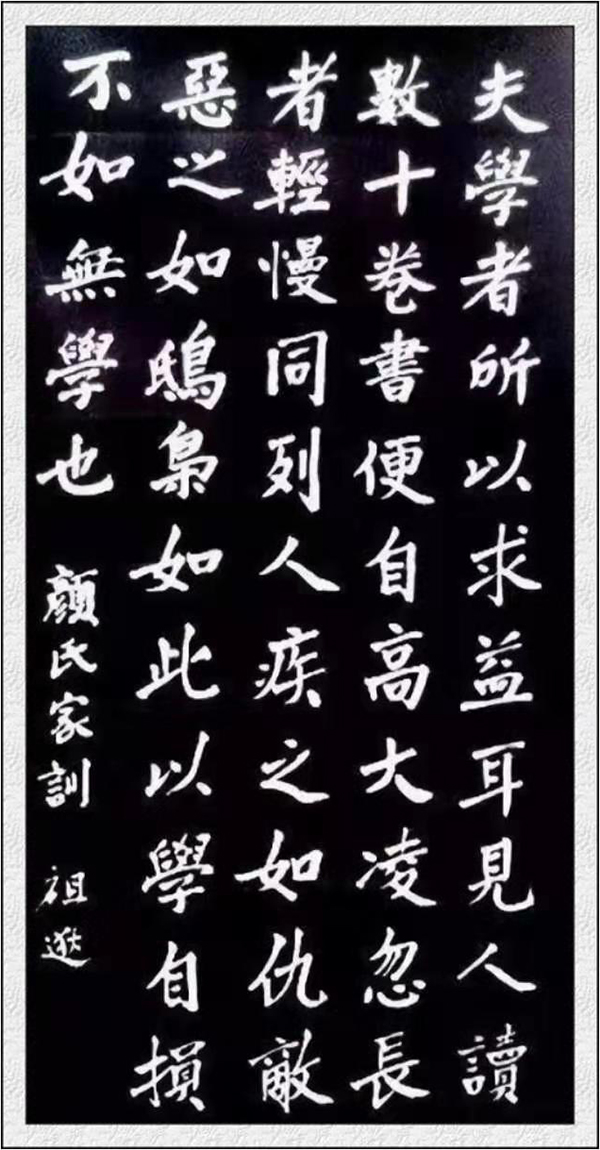 夫學者所以求益耳見人讀
數十卷書便自高大凌忽長
者輕慢同列人疾之如仇敵
惡之如鴟梟如此以學自損
不如無學也 顏氏家訓 祖遜